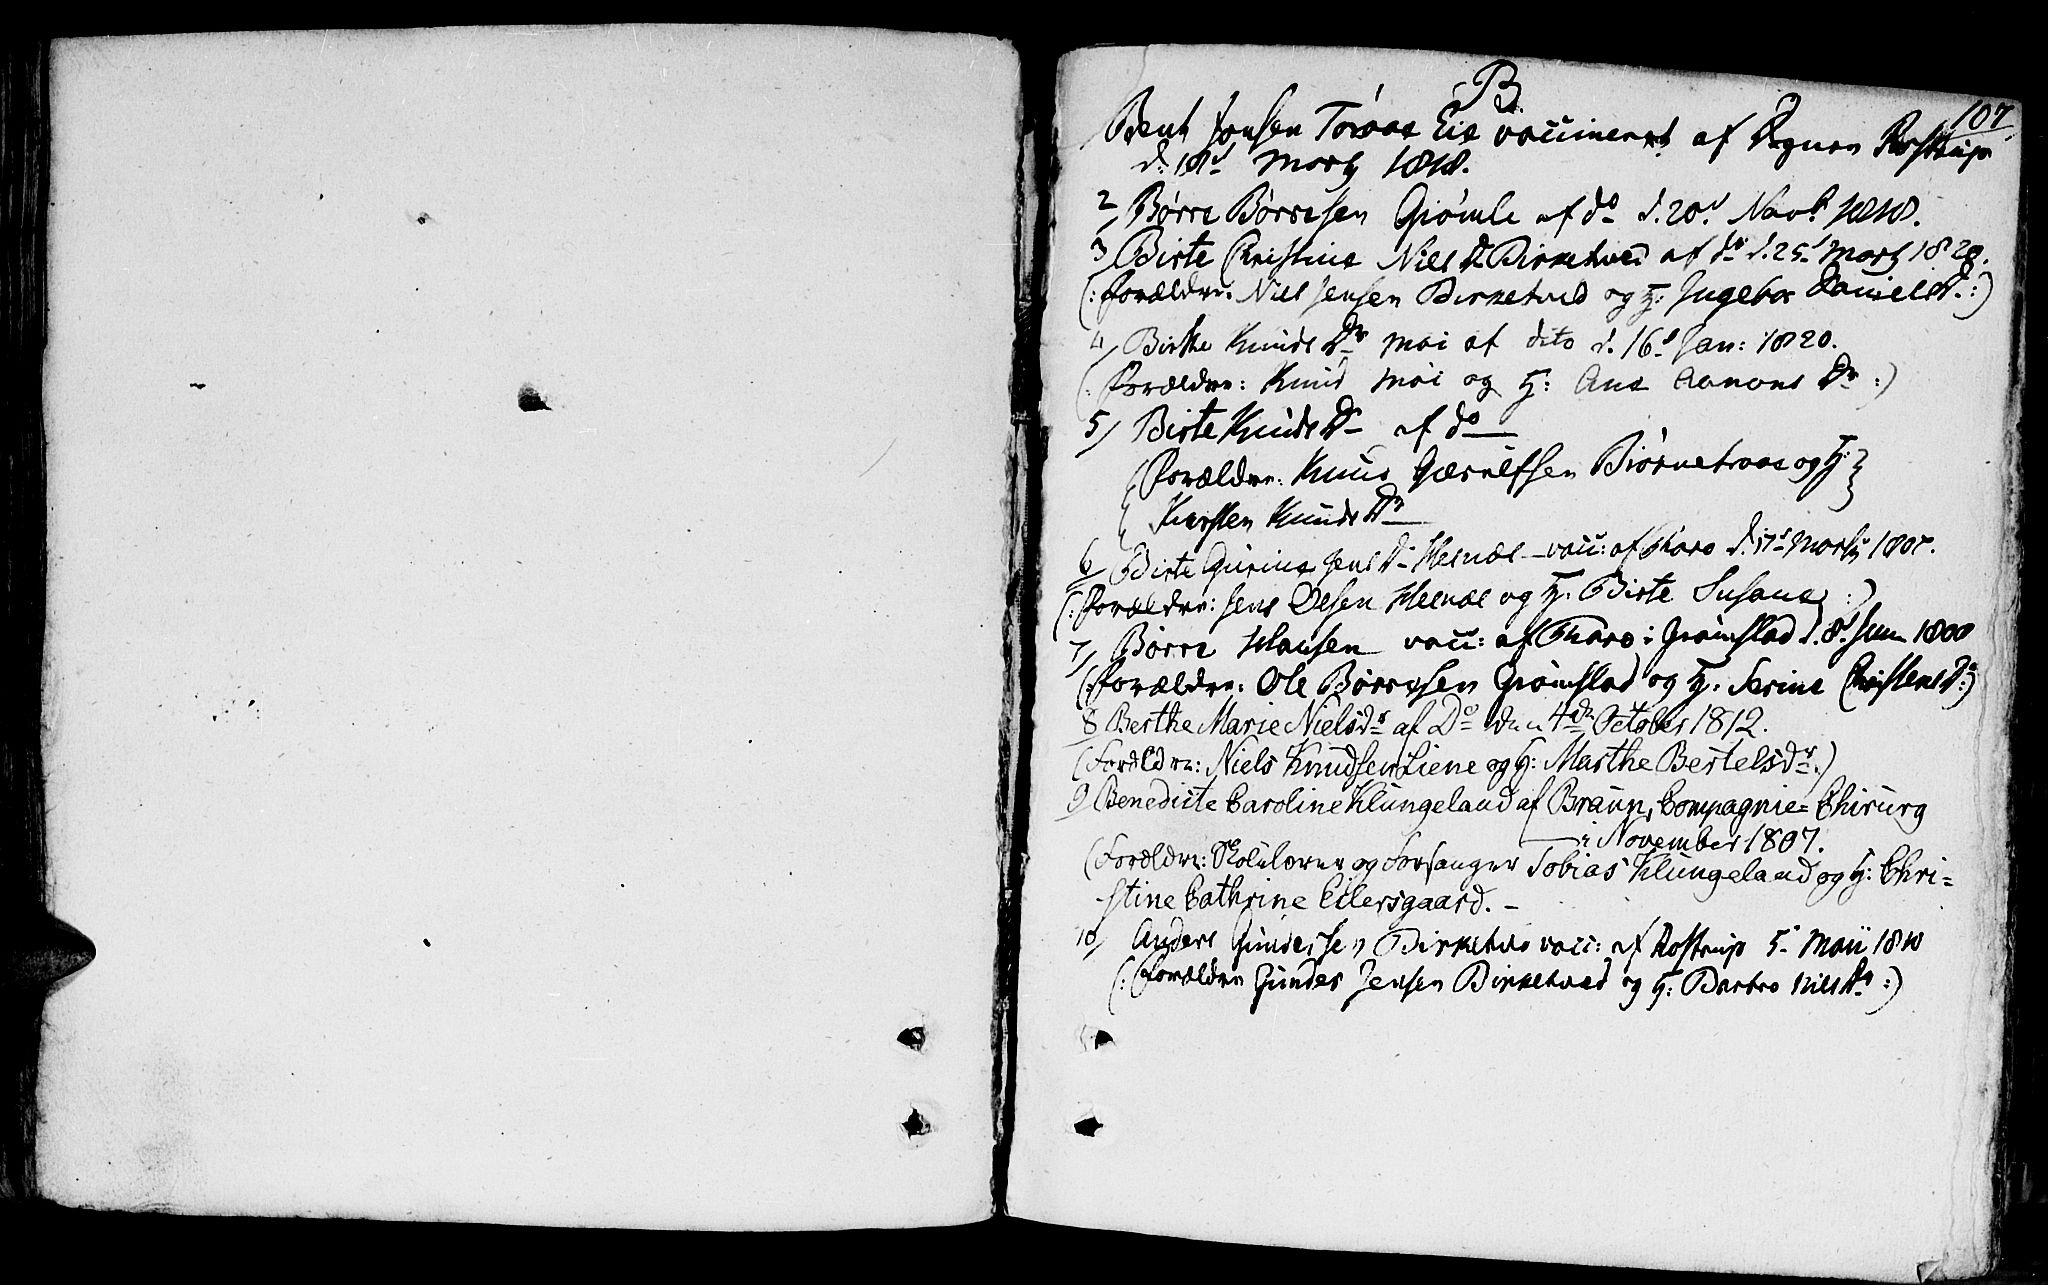 B.
107
Bent Jensen Toraas Eie vaccineret af Degnen Rostrup
d: 18d Marty 1818.
2/ Børre Børresen Grømle af do d. 20d Novb 1818.
3/ Birte Christine Niels Dr Birketved af do d. 25d Marty 1820.
(: Forældre: Niels Jensen Birketved og H: Ingebor Daniels Dr :)
4/ Birthe Knuds Dr Moi af dito d. 16d Jan: 1820.
(: Forældre: Knud Moi og H: Ane Aanons Dr :)
5/ Birte Knuds Dr af do
(Forældre: Knud Gjerulfsen Biørnetraae og H:
Kirsten Knuds Dr
6/ Birte Gurine Jens Dr Hesnæs - vacc: af Tharo d. 17d Marty 1807.
(: Forældre: Jens Olsen Hesnæs og H: Birte Susane :)
7/ Børre Hansen vacc: af Tharo i Grømstad d. 8d Juni 1808
(: Forældre: Ole Børresen Grømstad og H: Serine Christens Dr :)
8 Berthe Marie Nielsdr af Do den 4de October 1812.
(Forældre: Niels Knudsen Liene og H: Marthe Bertelsdr.)
9 Benedicte Caroline Klungeland af Braun, Compagnie= Chirurg
i November 1807.
(Forældre: Skolelærer og Forsanger Tobias Klungeland og H: Chri=
stine Cathrine Eilersgaard. -
10/ Anders Gundersen Birketved vacc: af Rostrup 5 Maii 1810
(: Forældre Gunder Jensen Birketved og H: Barbro Niels Dr :)